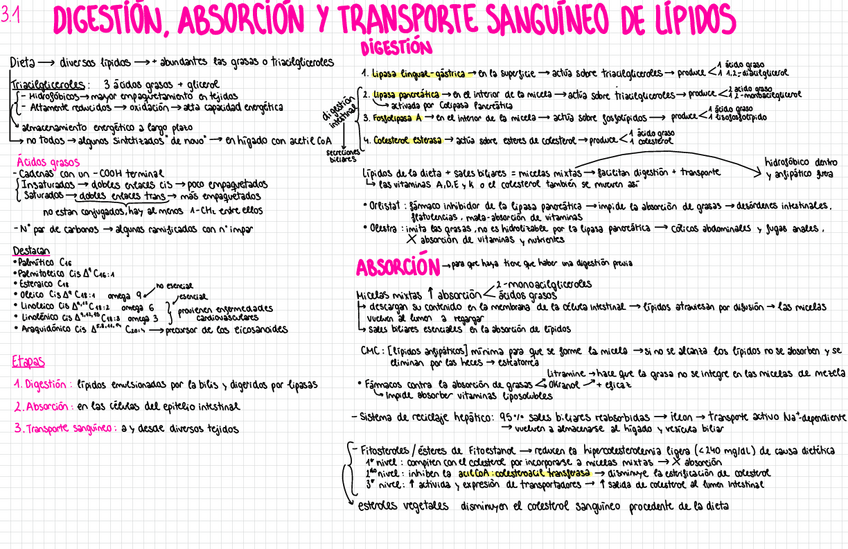 3.1 DIGESTIÓN, ABSORCIÓN Y TRANSPORTE SANGUÍNEO DE LÍPIDOS
Dieta → diversos lípidos → + abundantes las grasas o triacilgliceroles
Triacilgliceroles: 3 ácidos grasos + glicerol
- Hidrofóbicos → mayor empaquetamiento en tejidos
- Altamente reducidos → oxidación → alta capacidad energética
almacenamiento energético a largo plazo
→ no todos → algunos sintetizados "de novo" → en hígado con acetil CoA
Ácidos grasos
- Cadenas con un -COOH terminal
Insaturados → dobles enlaces cis → poco empaquetados
Saturados → dobles enlaces trans → más empaquetados
no estan conjugados, hay al menos 1 -CH₂ entre ellos
- Nº par de carbonos → algunos ramificados con nº impar
Destacan
• Palmítico C16
• Palmitoleico Cis Δ⁹ C16:1
• Esteraico C18
• Oleico Cis Δ⁹ C18:1 omega 9 no esencial
• Linoleico Cis Δ⁹,¹² C18:2 omega 6 esencial
• Linolénico Cis Δ⁹,¹²,¹⁵ C18:3 omega 3
previenen enfermedades cardiovasculares
• Araquidónico Cis Δ⁵,⁸,¹¹,¹⁴ C20:4 → precursor de los eicosanoides
Etapas
1. Digestión: lípidos emulsionados por la bilis y digeridos por lipasas
2. Absorción: en las células del epitelio intestinal
3. Transporte sanguíneo: a y desde diversos tejidos
DIGESTIÓN
1. Lipasa lingual-gástrica → en la superficie → actúa sobre triacilgliceroles → produce < 1 ácido graso
1 1,2-diacilglicerol
digestión intestinal
2. Lipasa pancreática → en el interior de la micela → actúa sobre triacilgliceroles → produce < 2 ácido graso
1 2-monoacilglicerol
→ activada por Colipasa Pancreática
3. Fosfolipasa A → en el interior de la micela → actúa sobre fosfolípidos → produce < 1 ácido graso
1 lisofosfolípido
4. Colesterol esterasa → actúa sobre esteres de colesterol → produce < 1 ácido graso
1 colesterol
secreciones biliares
Lípidos de la dieta + sales biliares = micelas mixtas → facilitan digestión + transporte
hidrofóbico dentro y anfipático fuera
→ las vitaminas A, D, E y K o el colesterol también se mueven así
• Orlistat: fármaco inhibidor de la lipasa pancreática → impide la absorción de grasas → desórdenes intestinales,
flatulencias, mala-absorción de vitaminas
• Olestra: imita las grasas, no es hidrolizable por la lipasa pancreática → cólicos abdominales y fugas anales,
X absorción de vitaminas y nutrientes
ABSORCIÓN → para que haya tiene que haber una digestión previa
Micelas mixtas ↑ absorción < 2-monoacilgliceroles
ácidos grasos
→ descargan su contenido en la membrana de la célula intestinal → lípidos atraviesan por difusión → las micelas
vuelven al lumen a regargar
→ sales biliares esenciales en la absorción de lípidos
CMC: [lípidos anfipáticos] mínima para que se forme la micela → si no se alcanza los lípidos no se absorben y se
eliminan por las heces → esteatorrea
Litramine → hace que la grasa no se integre en las micelas de mezcla
• Fármacos contra la absorción de grasas < Okranol → + eficaz
→ Impide absorber vitaminas liposolubles
- Sistema de reciclaje hepático: 95% sales biliares reabsorbidas → íleon → transporte activo Na⁺-dependiente
→ vuelven a almacenarse al hígado y vesícula biliar
- Fitosteroles / ésteres de Fitoestanol → reducen la hipercolesterolemia ligera (<240 mg/dL) de causa dietética
1er nivel: compiten con el colesterol por incorporarse a micelas mixtas → X absorción
2do nivel: inhiben la acilCoA: colesterolacil transferasa → disminuye la esterificación de colesterol
3er nivel: ↑ activida y expresión de transportadores → ↑ salida de colesterol al lumen intestinal
esteroles vegetales disminuyen el colesterol sanguíneo procedente de la dieta